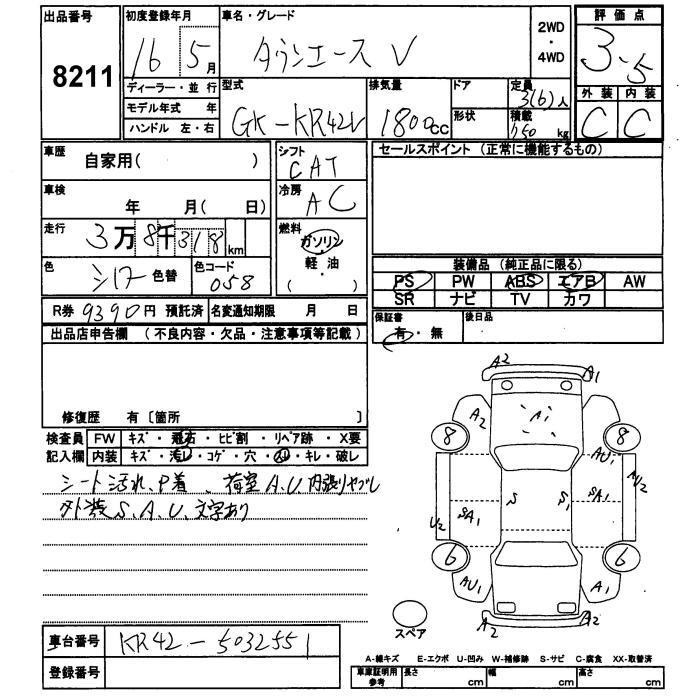 出品番号
8211
初度登録年月
16 5月
車名・グレード
タウンエース V
2WD
・
4WD
評価点
3.5
外装 内装
C C
ディーラー・並行
モデル年式 年
ハンドル 左・右
型式
GK-KR42V
排気量
1800cc
ドア
形状
定員
3(6)人
積載
750kg
車歴
自家用( )
シフト
CAT
車検
年 月( 日)
冷房
AC
走行
3万8千318km
燃料
ガソリン
・
軽・油
( )
色
シロ 色替
色コード
058
セールスポイント (正常に機能するもの)
装備品 (純正品に限る)
PS PW ABS エアB AW
SR ナビ TV カワ
保証書
有・無
後日品
R券 9390円 預託済
名変通知期限 月 日
出品店申告欄 (不良内容・欠品・注意事項等記載)
修復歴 有〔箇所
検査員 FW キズ・飛石・ヒビ割・リペア跡・X要
記入欄 内装 キズ・汚レ・コゲ・穴・ キレ・破レ
シート汚れ、P着、荷室A.U.内張りヤブレ
外装S、A、U、文字あり
A2 A1
A2 A1
8 8
AU1
U2 SA1 S S1 SA1 AU2
6 6
AU1 A1
A2 A2
スペア
車台番号
KR42-5032551
登録番号
A-線キズ E-エクボ U-凹み W-補修跡 S-サビ C-腐食 XX-取替済
車庫証明用
参考
長さ cm 幅 cm 高さ cm